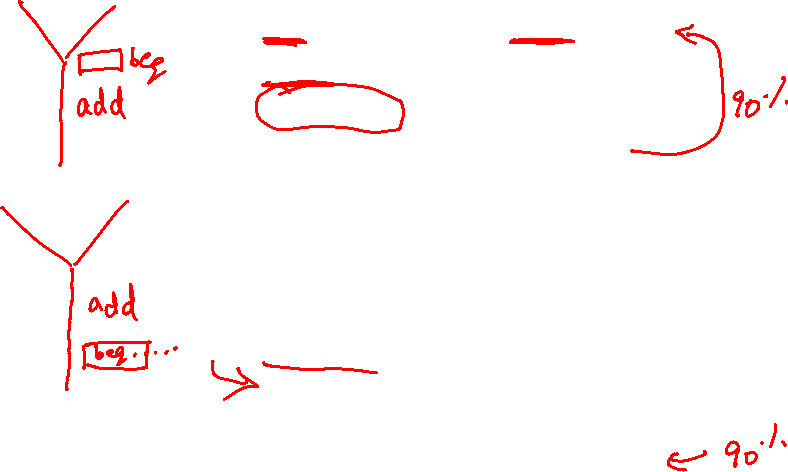 beq
add
90%
add
beq....
90%